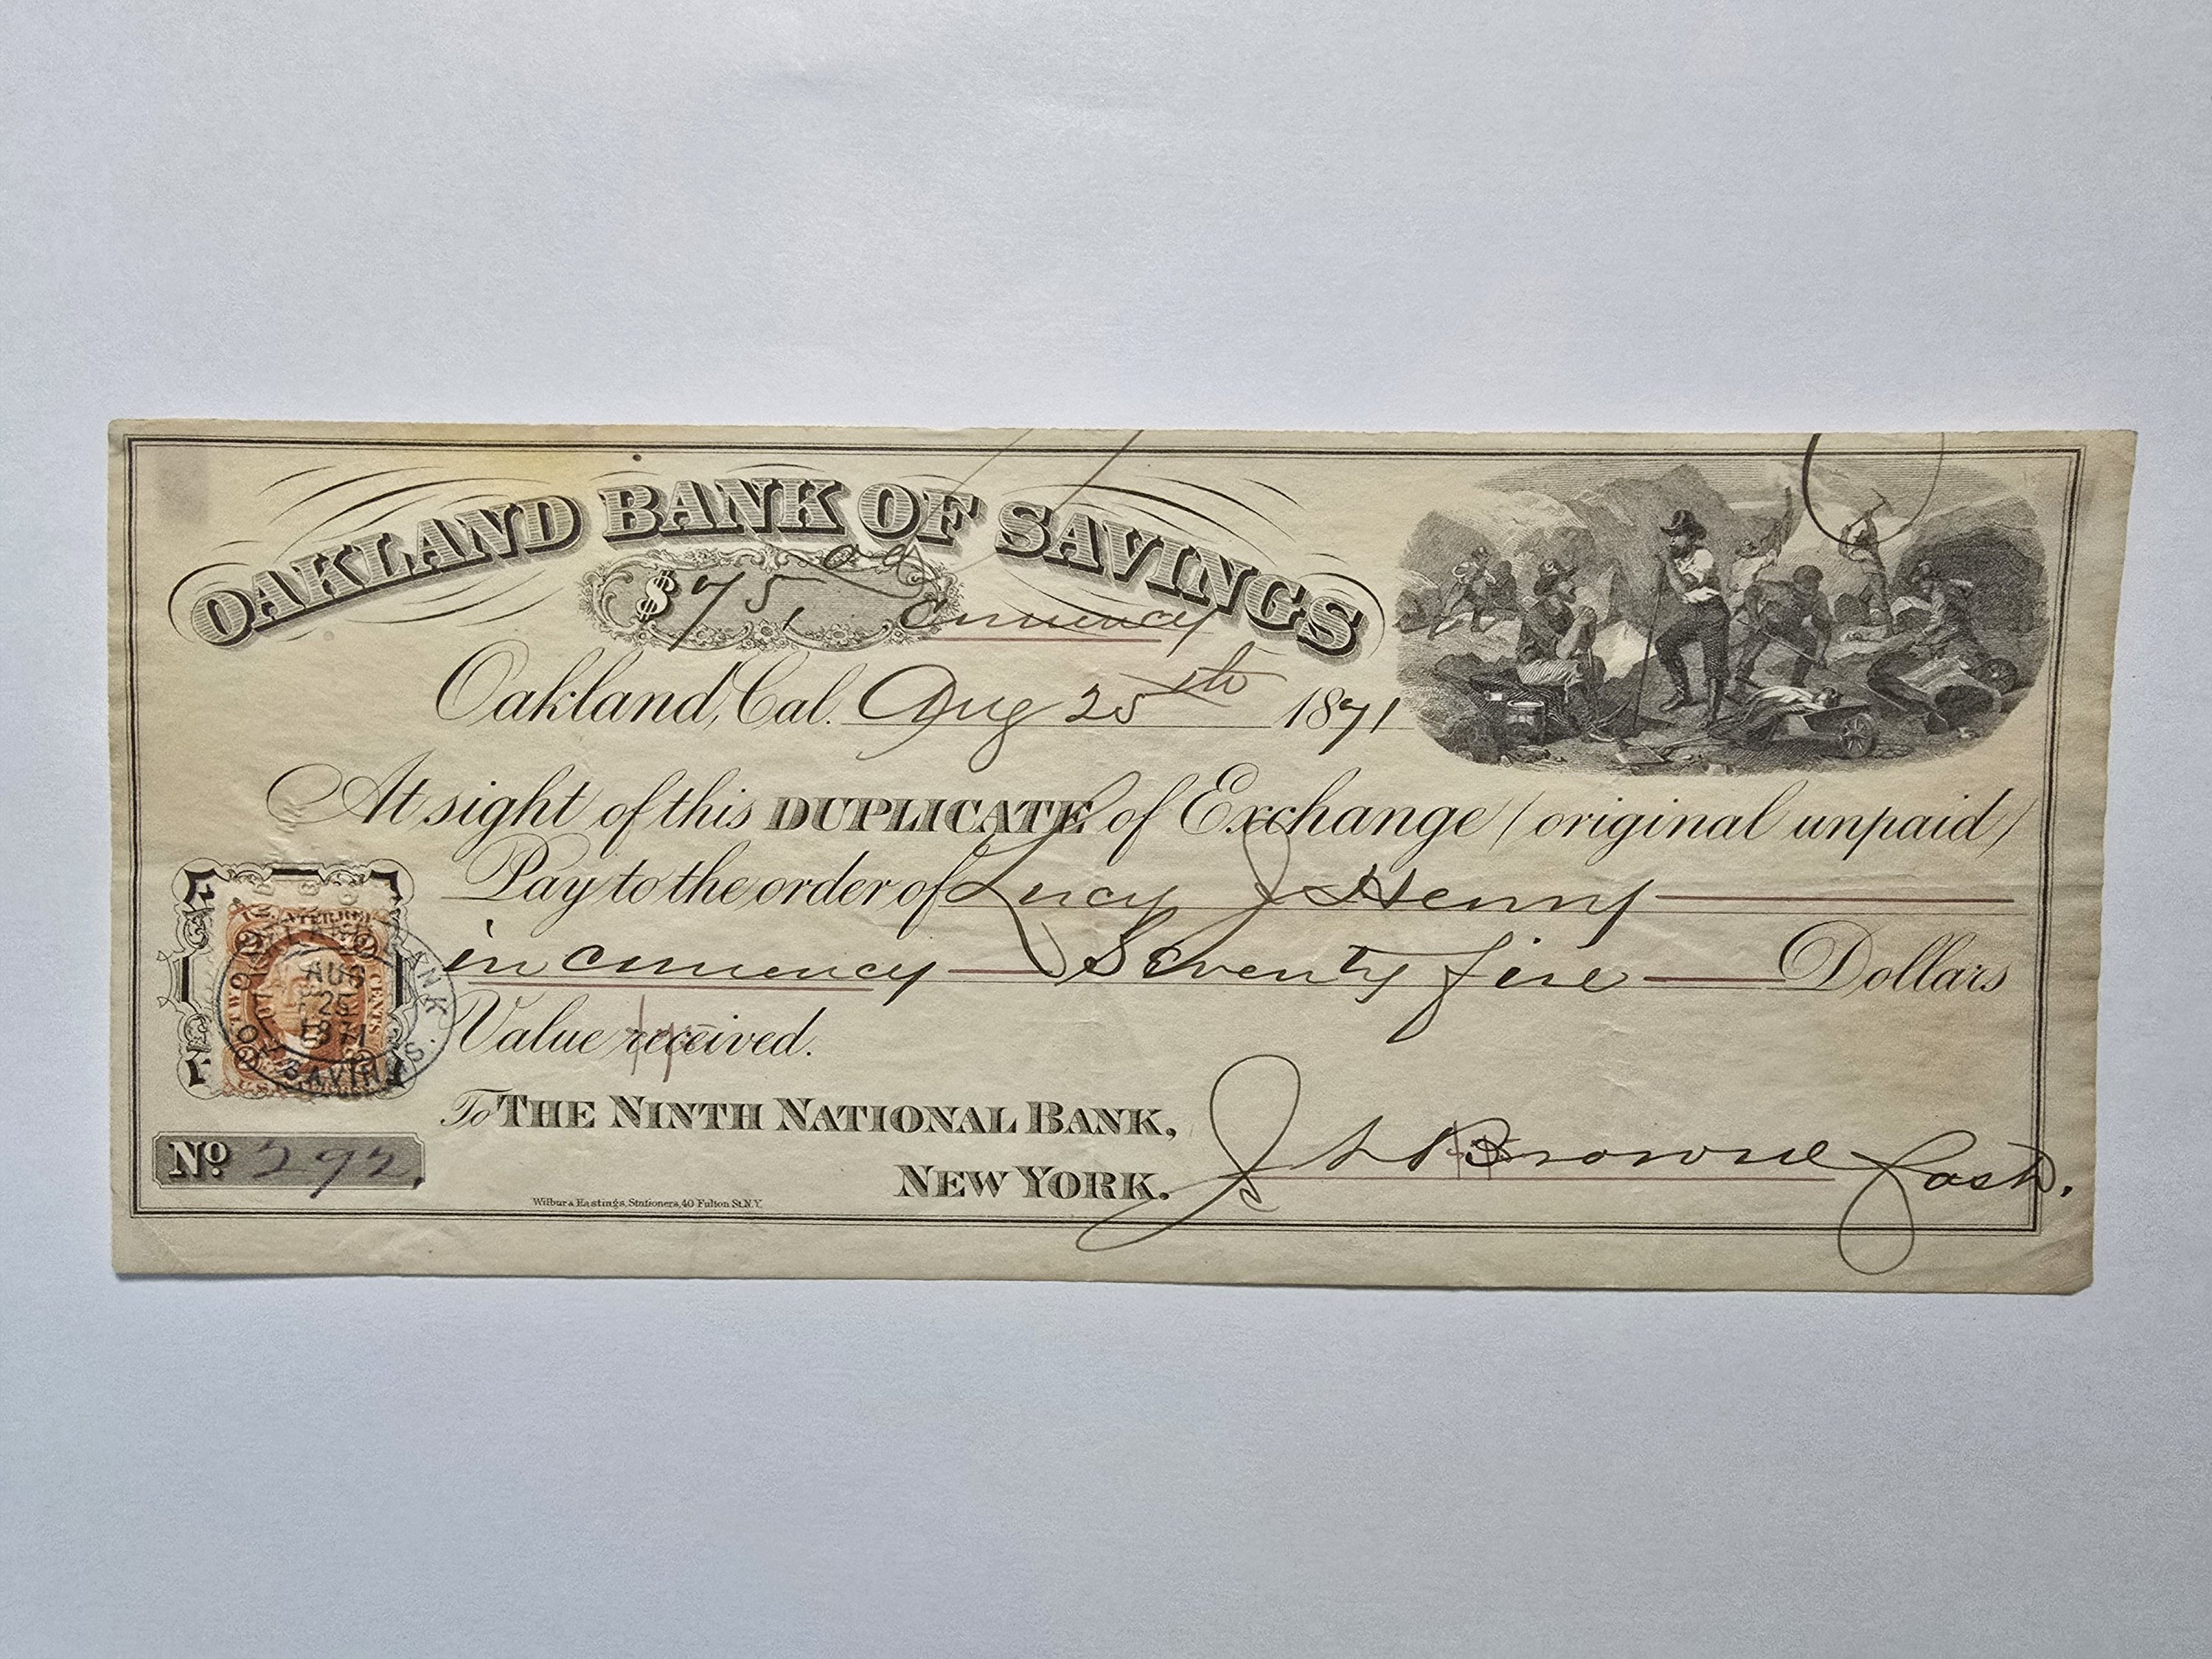 OAKLAND BANK OF SAVINGS
$75,00
Currency
Oakland, Cal. Aug 25th 1871
At sight of this DUPLICATE of Exchange (original unpaid)
Pay to the order of Lucy J Henny
in currency Seventy five Dollars
Value received.
TWO CENTS
AUG
25
1871
BANK
SAVINGS
To THE NINTH NATIONAL BANK,
NEW YORK.
No 292.
Browne Cash.
Wilbur & Hastings, Stationers, 40 Fulton St. N.Y.